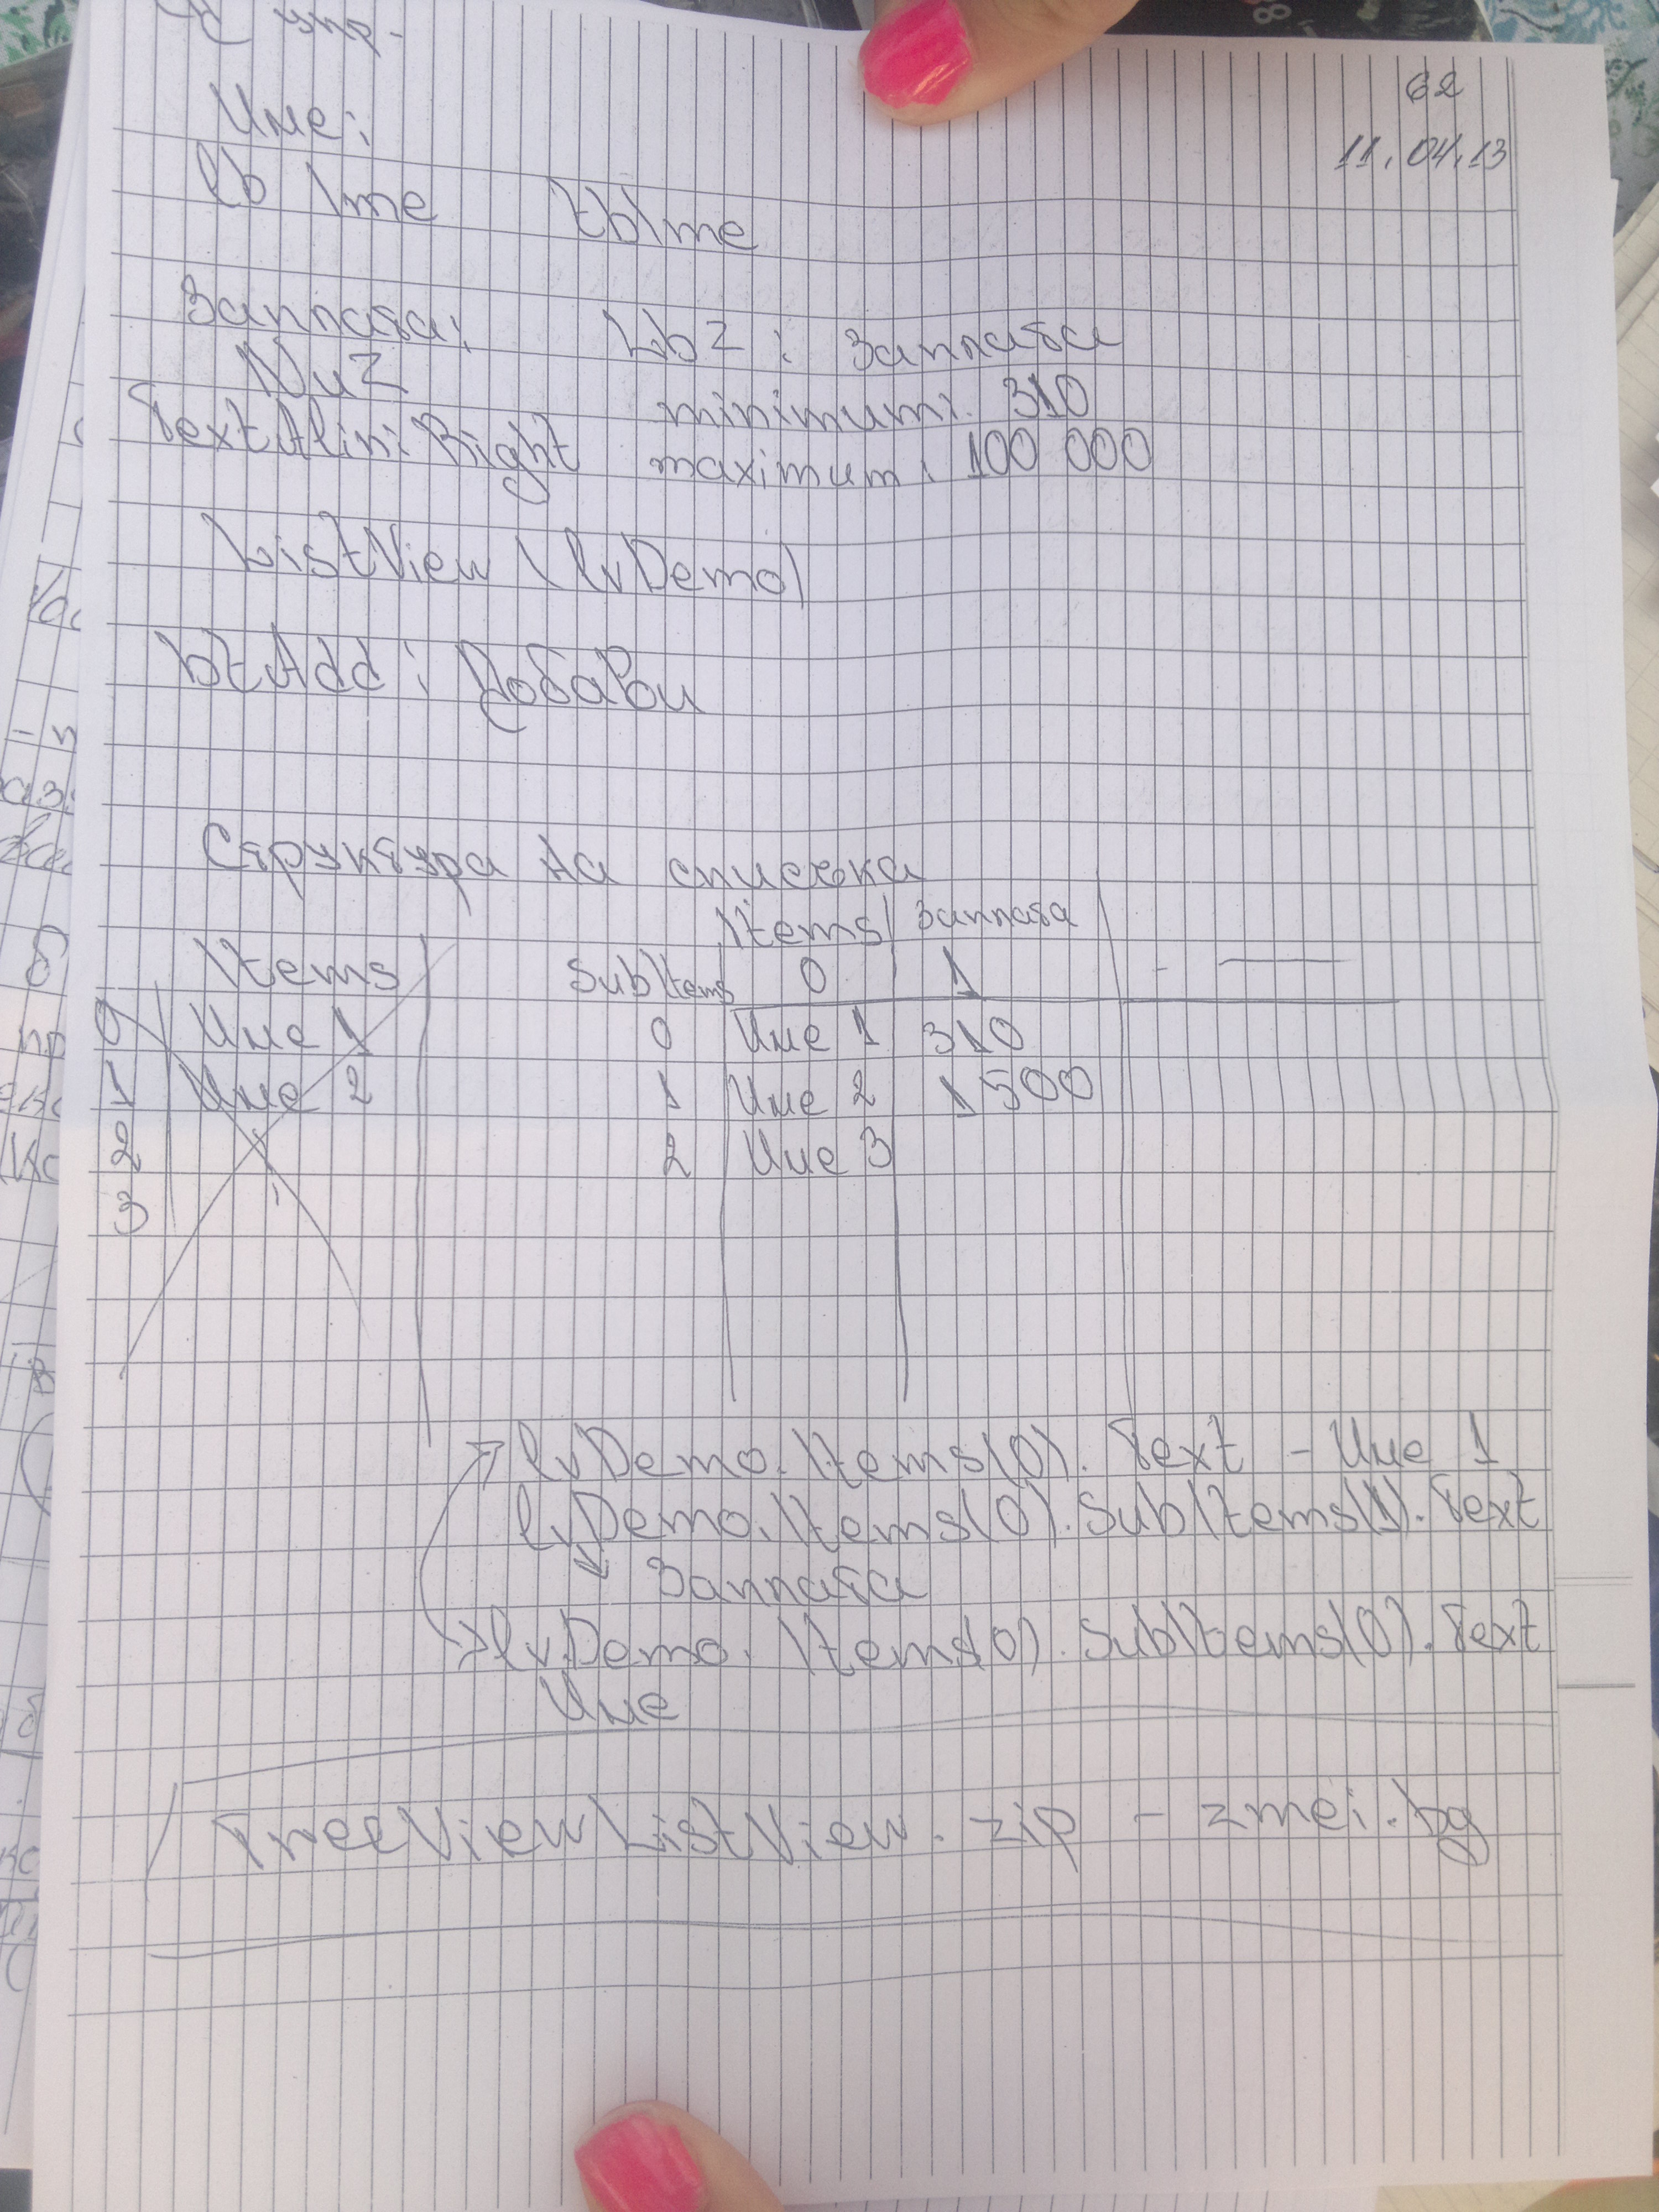 упр.
62
11.04.13
Име:
lb Ime tbIme
Заплата: Lbz: Заплата
NuZ minimum: 310
TextAlin: Right maximum: 100 000
ListView (lvDemo)
btAdd: Добави
Структура на списъка
Items Заплата
Items SubItems 0 1 -
0 Име 1 0 Име 1 310
1 Име 2 1 Име 2 1 500
2 2 Име 3
3
lvDemo.Items(0).Text - Име 1
lvDemo.Items(0).SubItems(1).Text
Заплата
lvDemo.Items(0).SubItems(0).Text
Име
TreeViewListView.zip - zmei.bg